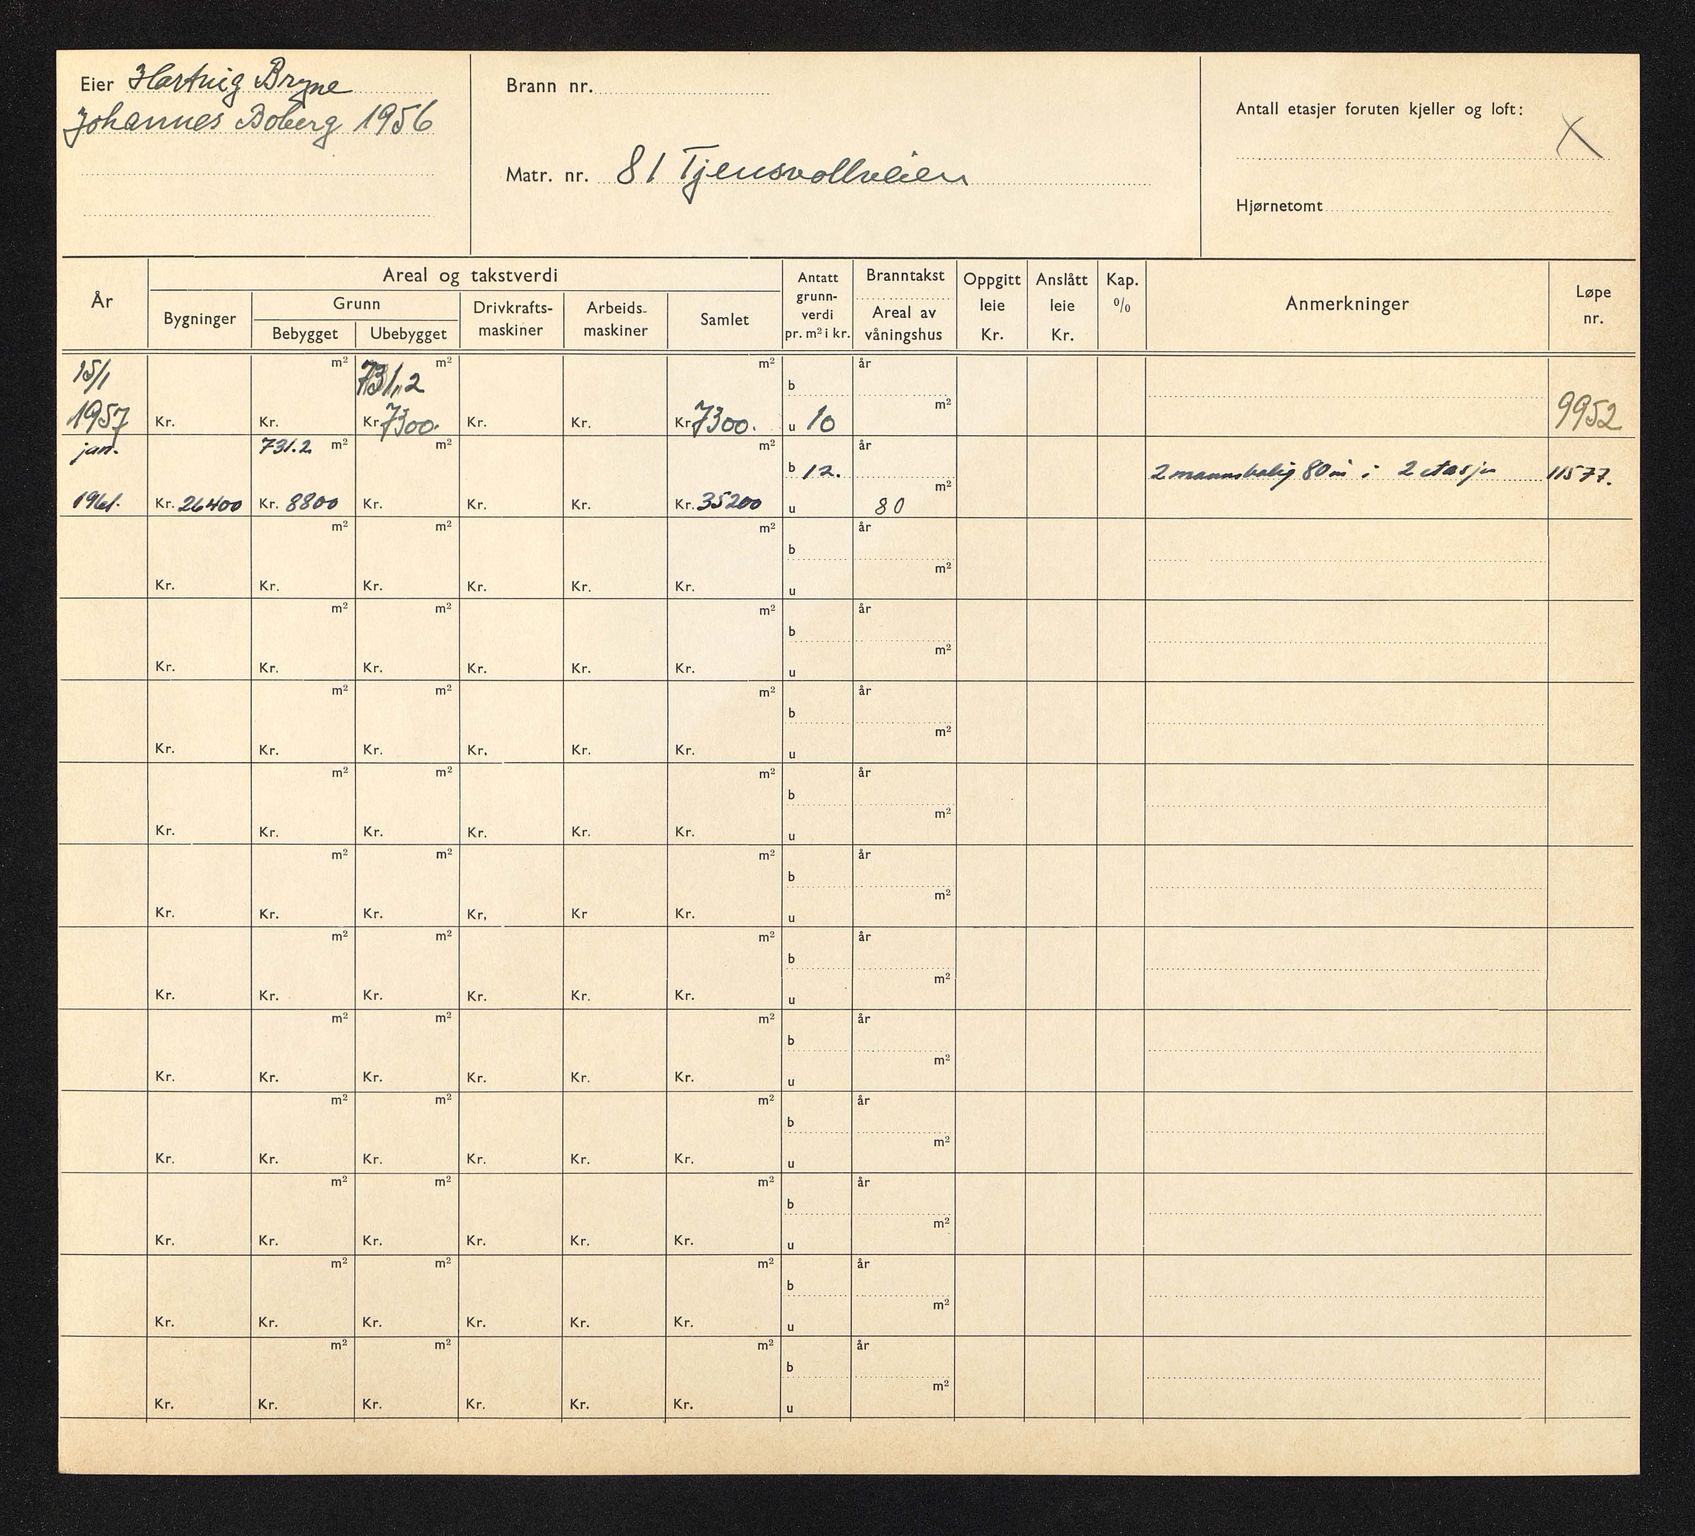 Eier Hartvig Bryne
Johannes Boberg 1956
Brann nr.
Matr. nr. 81 Tjensvollveien
Antall etasjer foruten kjeller og loft:
X
Hjørnetomt
År
Areal og takstverdi
Bygninger
Grunn
Bebygget Ubebygget
Drivkrafts-
maskiner
Arbeids-
maskiner
Samlet
Antatt
grunn-
verdi
pr. m² i kr.
Branntakst
Areal av
våningshus
Oppgitt
leie
Kr.
Anslått
leie
Kr.
Kap.
%
Anmerkninger
Løpe
nr.
15/1 m² 731,2 m² m² b år
1957 Kr. Kr. Kr. 7300. Kr. Kr. Kr. 7300. u 10 m² 9952
jan. 731.2 m² m² m² b 12. år 2 mannsbolig 80 m² i 2 etasjer 11577.
1961. Kr. 26400 Kr. 8800 Kr. Kr. Kr. Kr. 35200 u m² 80
m² m² m² b år
Kr. Kr. Kr. Kr. Kr. Kr. u m²
m² m² m² b år
Kr. Kr. Kr. Kr. Kr. Kr. u m²
m² m² m² b år
Kr. Kr. Kr. Kr. Kr. Kr. u m²
m² m² m² b år
Kr. Kr. Kr. Kr. Kr. Kr. u m²
m² m² m² b år
Kr. Kr. Kr. Kr, Kr Kr. u m²
m² m² m² b år
Kr. Kr. Kr. Kr. Kr. Kr. u m²
m² m² m² b år
Kr. Kr. Kr. Kr. Kr. Kr. u m²
m² m² m² b år
Kr. Kr. Kr. Kr. Kr. Kr. u m²
m² m² m² b år
Kr. Kr. Kr. Kr. Kr. Kr. u m²
m² m² m² b år
Kr. Kr. Kr. Kr. Kr. Kr. u m²
m² m² m² b år
Kr. Kr. Kr. Kr. Kr. Kr. u m²